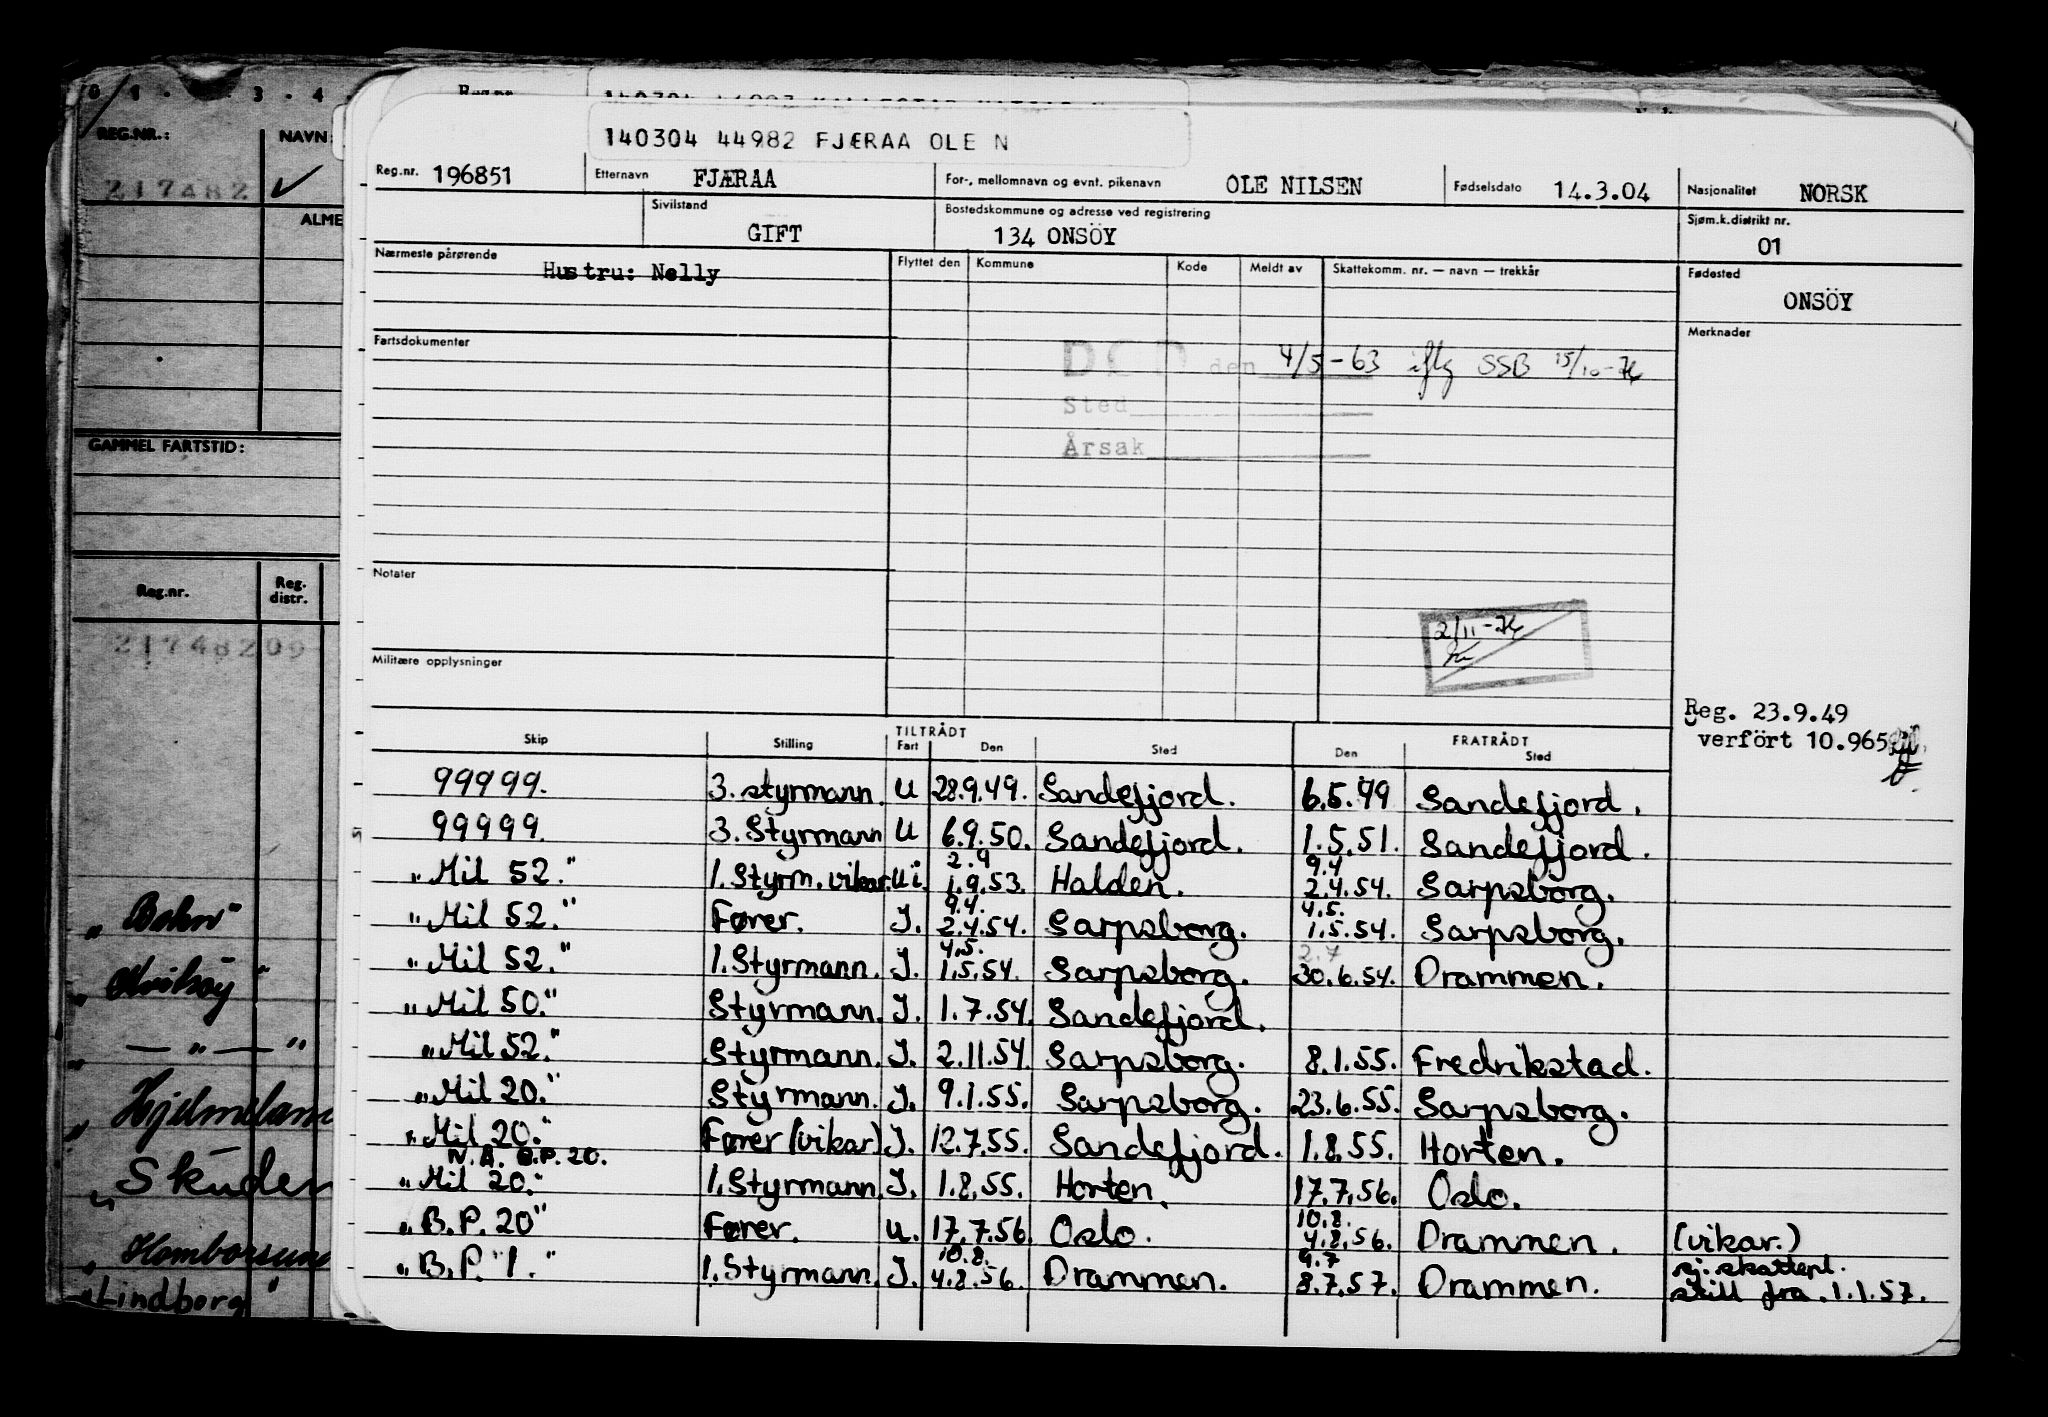 140304 44982 FJÆRAA OLE N
Reg.nr. 196851 Etternavn FJÆRAA For-, mellomnavn og evnt. pikenavn OLE NILSEN Fødselsdato 14.3.04 Nasjonalitet NORSK
Sivilstand GIFT Bostedskommune og adresse ved registrering 134 ONSÖY Sjøm.k.distrikt nr. 01
Nærmeste pårørende Hustru: Nelly Flyttet den Kommune Kode Meldt av Skattekomm. nr. — navn — trekkår Fødested ONSÖY
Fartsdokumenter Merknader
DØD den 4/5-63 iflg SSB 15/10-74
Sted
Årsak
Notater
2/11-74
Militære opplysninger
Reg. 23.9.49
verfört 10.965
Skip Stilling TILTRÅDT Fart Den Sted FRATRÅDT Den Sted
99999. 3. styrmann. U 28.9.49. Sandefjord. 6.5.49 Sandefjord.
99999. 3. Styrmann U 6.9.50. Sandefjord. 1.5.51. Sandefjord.
2.9 9.4
"Mil 52." 1. Styrm. vikar. Ui. 1.9.53. Halden. 2.4.54. Sarpsborg.
9.4. 4.5.
"Mil 52." Fører. I. 2.4.54. Sarpsborg. 1.5.54. Sarpsborg.
4.5. 2.7
"Mil 52." 1. Styrmann. I. 1.5.54. Sarpsborg. 30.6.54. Drammen.
"Mil 50." Styrmann. I. 1.7.54. Sandefjord.
"Mil 52." Styrmann. I. 2.11.54. Sarpsborg. 8.1.55. Fredrikstad.
"Mil 20." Styrmann. I. 9.1.55. Sarpsborg. 23.6.55. Sarpsborg.
"Mil 20." Fører (vikar) I. 12.7.55. Sandefjord. 1.8.55. Horten.
N.Å. B.P. 20.
"Mil 20." 1. Styrmann. I. 1.8.55. Horten. 17.7.56. Oslo.
10.8.
"B.P. 20" Fører. U. 17.7.56. Oslo. 4.8.56. Drammen. (vikar.)
10.8. 9.7 sj. skattepl.
"B.P. "1." 1. Styrmann. I. 4.8.56. Drammen. 8.7.57. Drammen. skill fra. 1.1.57.
0 1 . . 3 . 4
REG.NR.: NAVN
217482
ALME
GAMMEL FARTSTID:
Reg.nr. Reg. distr.
21748209
"Bokn"
— " — "
"Hjelmelan
"Skuden
"Homborsun
"Lindborg"